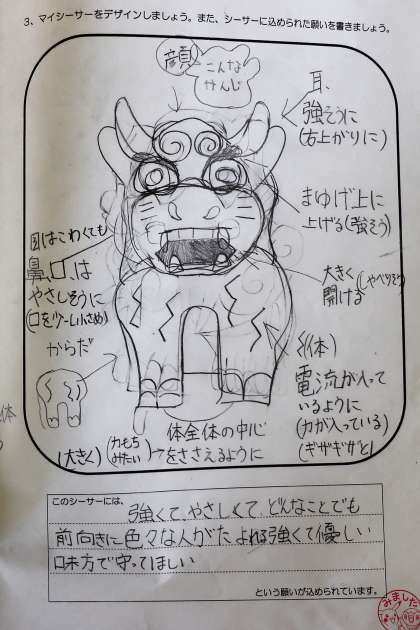 3、マイシーサーをデザインしましょう。また、シーサーに込められた願いを書きましょう。
顔
こんな
かんじ
耳、
強そうに
(右上がりに)
まゆげ上に
上げる(強そう)
目はこわくても
鼻、口、は
やさしそうに
大きく(しゃべりそう)
開ける
からだ
(体)
電流が入って
いるように
(力が入っている)
(ギザギザと)
(大きく)
(力もち
みたい)
→
体全体の中心
をささえるように
このシーサーには、
強くて、やさしくて、どんなことでも
前向きに色々な人がたよれる強くて優しい
味方で守ってほしい
という願いが込められています。
みました